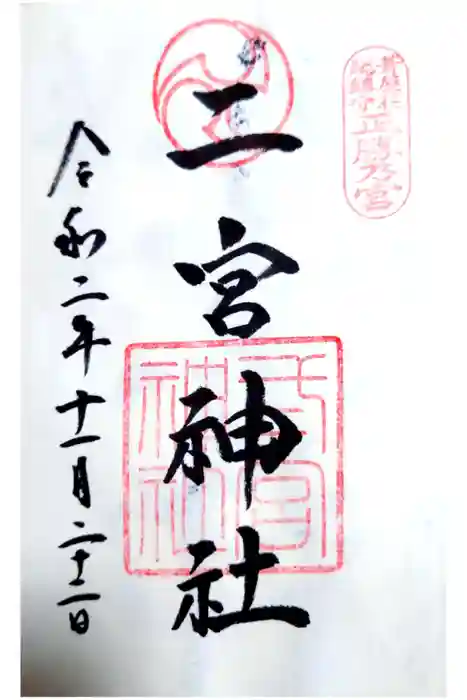 正勝乃宮
二宮神社
神社
令和二年十一月二十二日